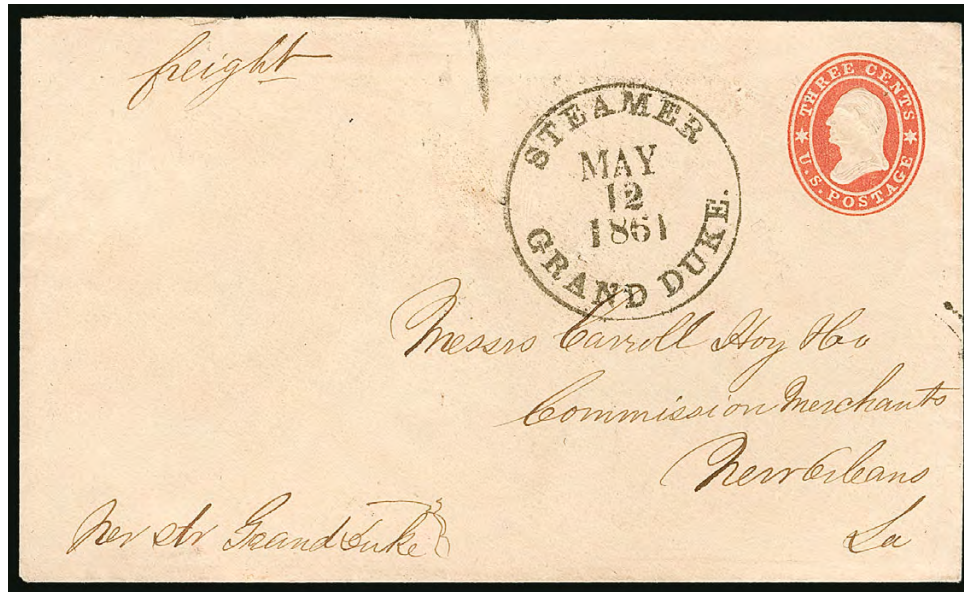 freight
STEAMER
MAY
12
1861
GRAND DUKE.
THREE CENTS
U.S. POSTAGE
Messrs Carroll Hoy & Co
Commission Merchants
New Orleans
La
Per Str Grand Duke